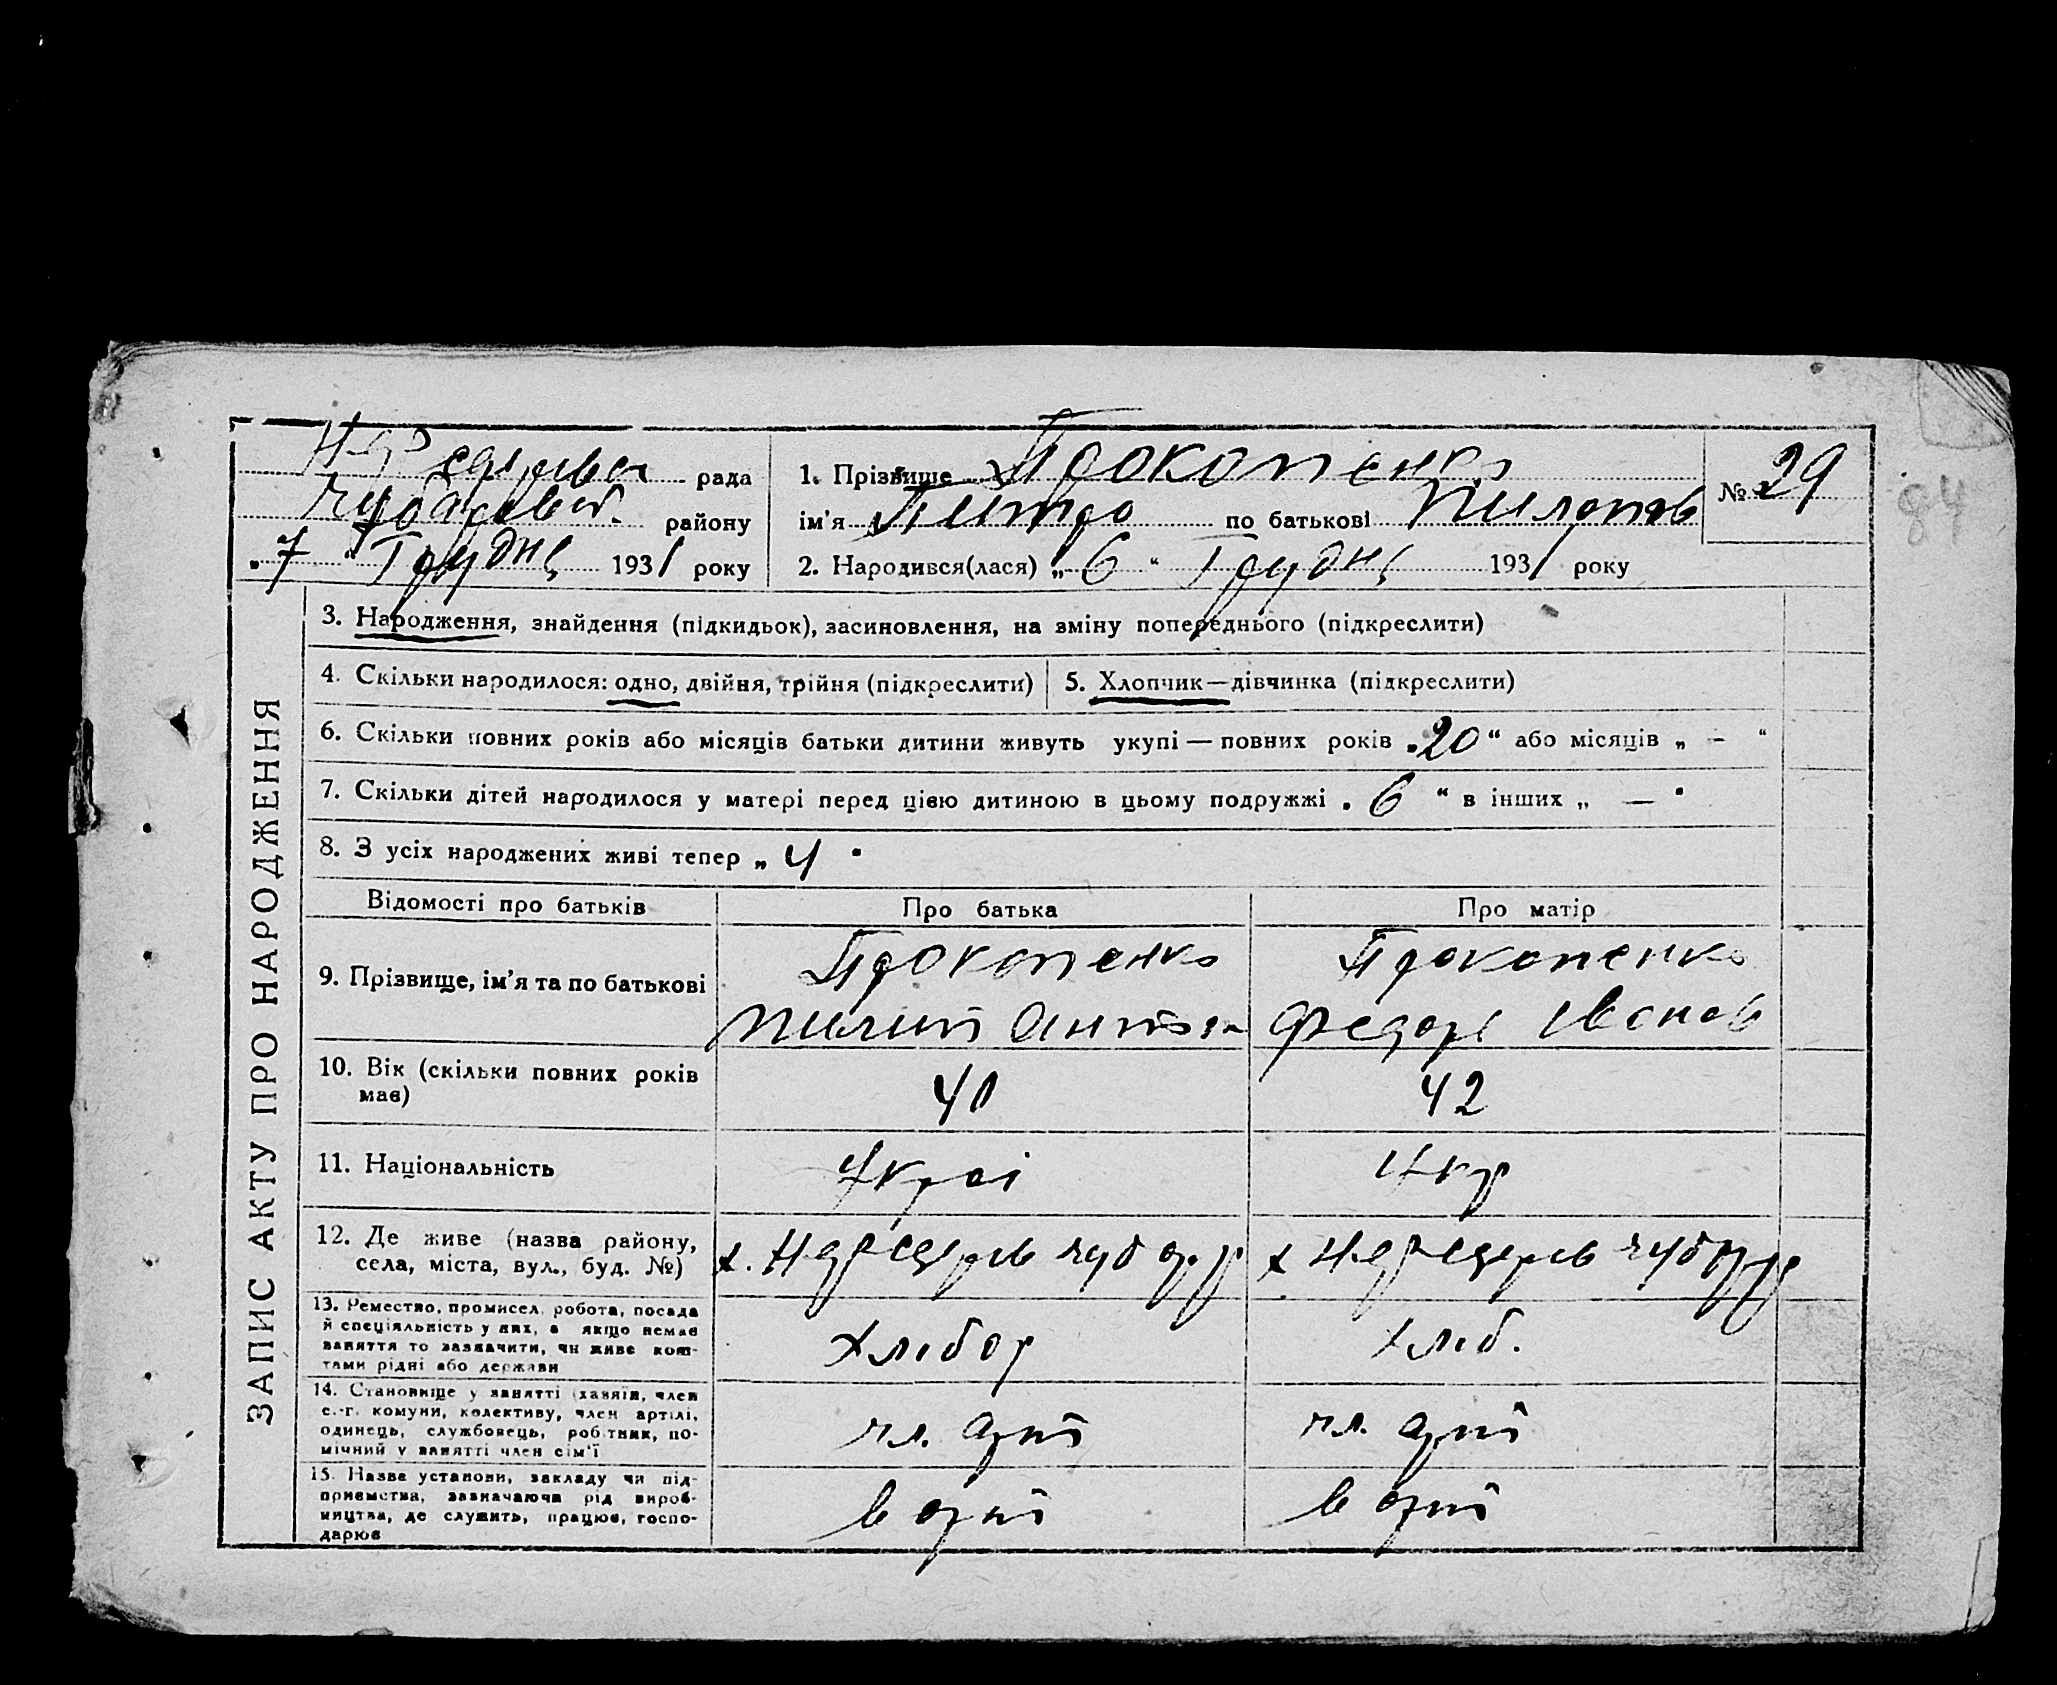 рада
Чубарівськ. району
„7“ Грудня 1931 року
1. Прізвище Прокопенко
ім'я Питро по батькові Пилипов
2. Народився(лася) „6“ Грудня 1931 року
№ 29
84
ЗАПИС АКТУ ПРО НАРОДЖЕННЯ
3. Народження, знайдення (підкидьок), засиновлення, на зміну попереднього (підкреслити)
4. Скільки народилося: одно, двійня, трійня (підкреслити)
5. Хлопчик—дівчинка (підкреслити)
6. Скільки повних років або місяців батьки дитини живуть укупі — повних років „20“ або місяців „ - “
7. Скільки дітей народилося у матері перед цією дитиною в цьому подружжі „6“ в інших „ — “
8. З усіх народжених живі тепер „4“
Відомості про батьків Про батька Про матір
9. Прізвище, ім'я та по батькові
Прокопенко
Пилип Антон
Прокопенко
Федора Іванов
10. Вік (скільки повних років
має)
40 42
11. Національність Украі Укр
12. Де живе (назва району,
села, міста, вул., буд. №)
13. Ремество, промисел, робота, посада
й спеціяльність у них, а якщо немає
заняття то зазначити, чи живе кош-
тами рідні або держави
Хлібор хліб.
14. Становище у занятті (хазяїн, член
с.-г. комуни, колективу, член артілі,
одинець, службовець, робітник, по-
мічний у занятті член сім'ї
чл. арт чл. арт
15. Назва установи, закладу чи під-
приємства, зазначаючи рід вироб-
ництва, де служить, працює, госпо-
дарює
в арт в арт